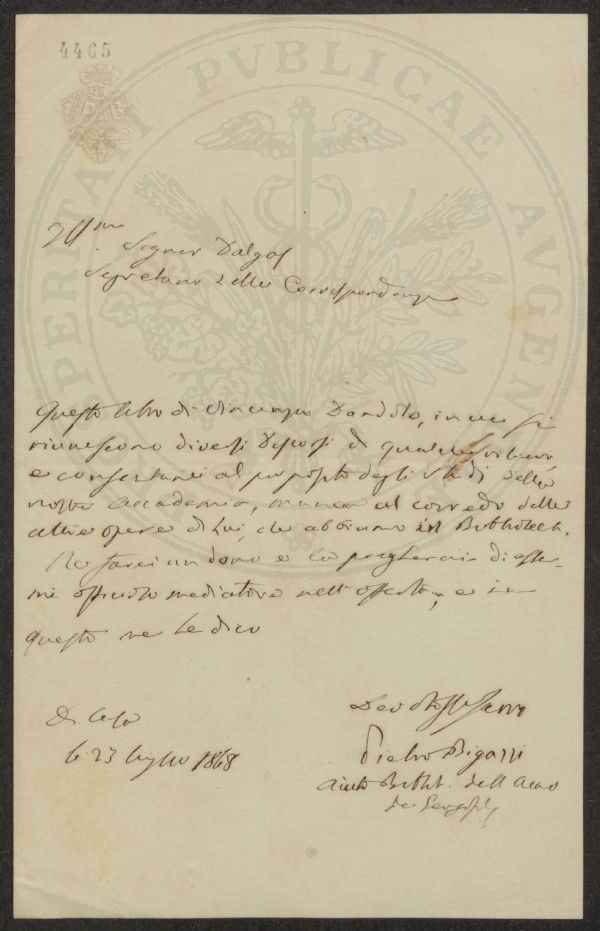 4465
PROSPERITATI PVBLICAE AVGENDAE
Ill.mo
Signor Dalgas
Segretario delle Corrispondenze
Questo libro di Vincenzo Dandolo, in cui si
riuniscono diversi Discorsi di qualche
e al proposito degli studi della
nostra Accademia, manca al corredo delle
altre opere di Lui, che abbiamo in Bibliotech.
Ne farei un dono e la pregherei di esser-
mi mediatore nell' offerta, e in
questo me le dico
Di Casa
li 23 luglio 1868
Devotiss Servo
Pietro Bigazzi
Aiuto Biblit. dell Acca
dei Georgofili